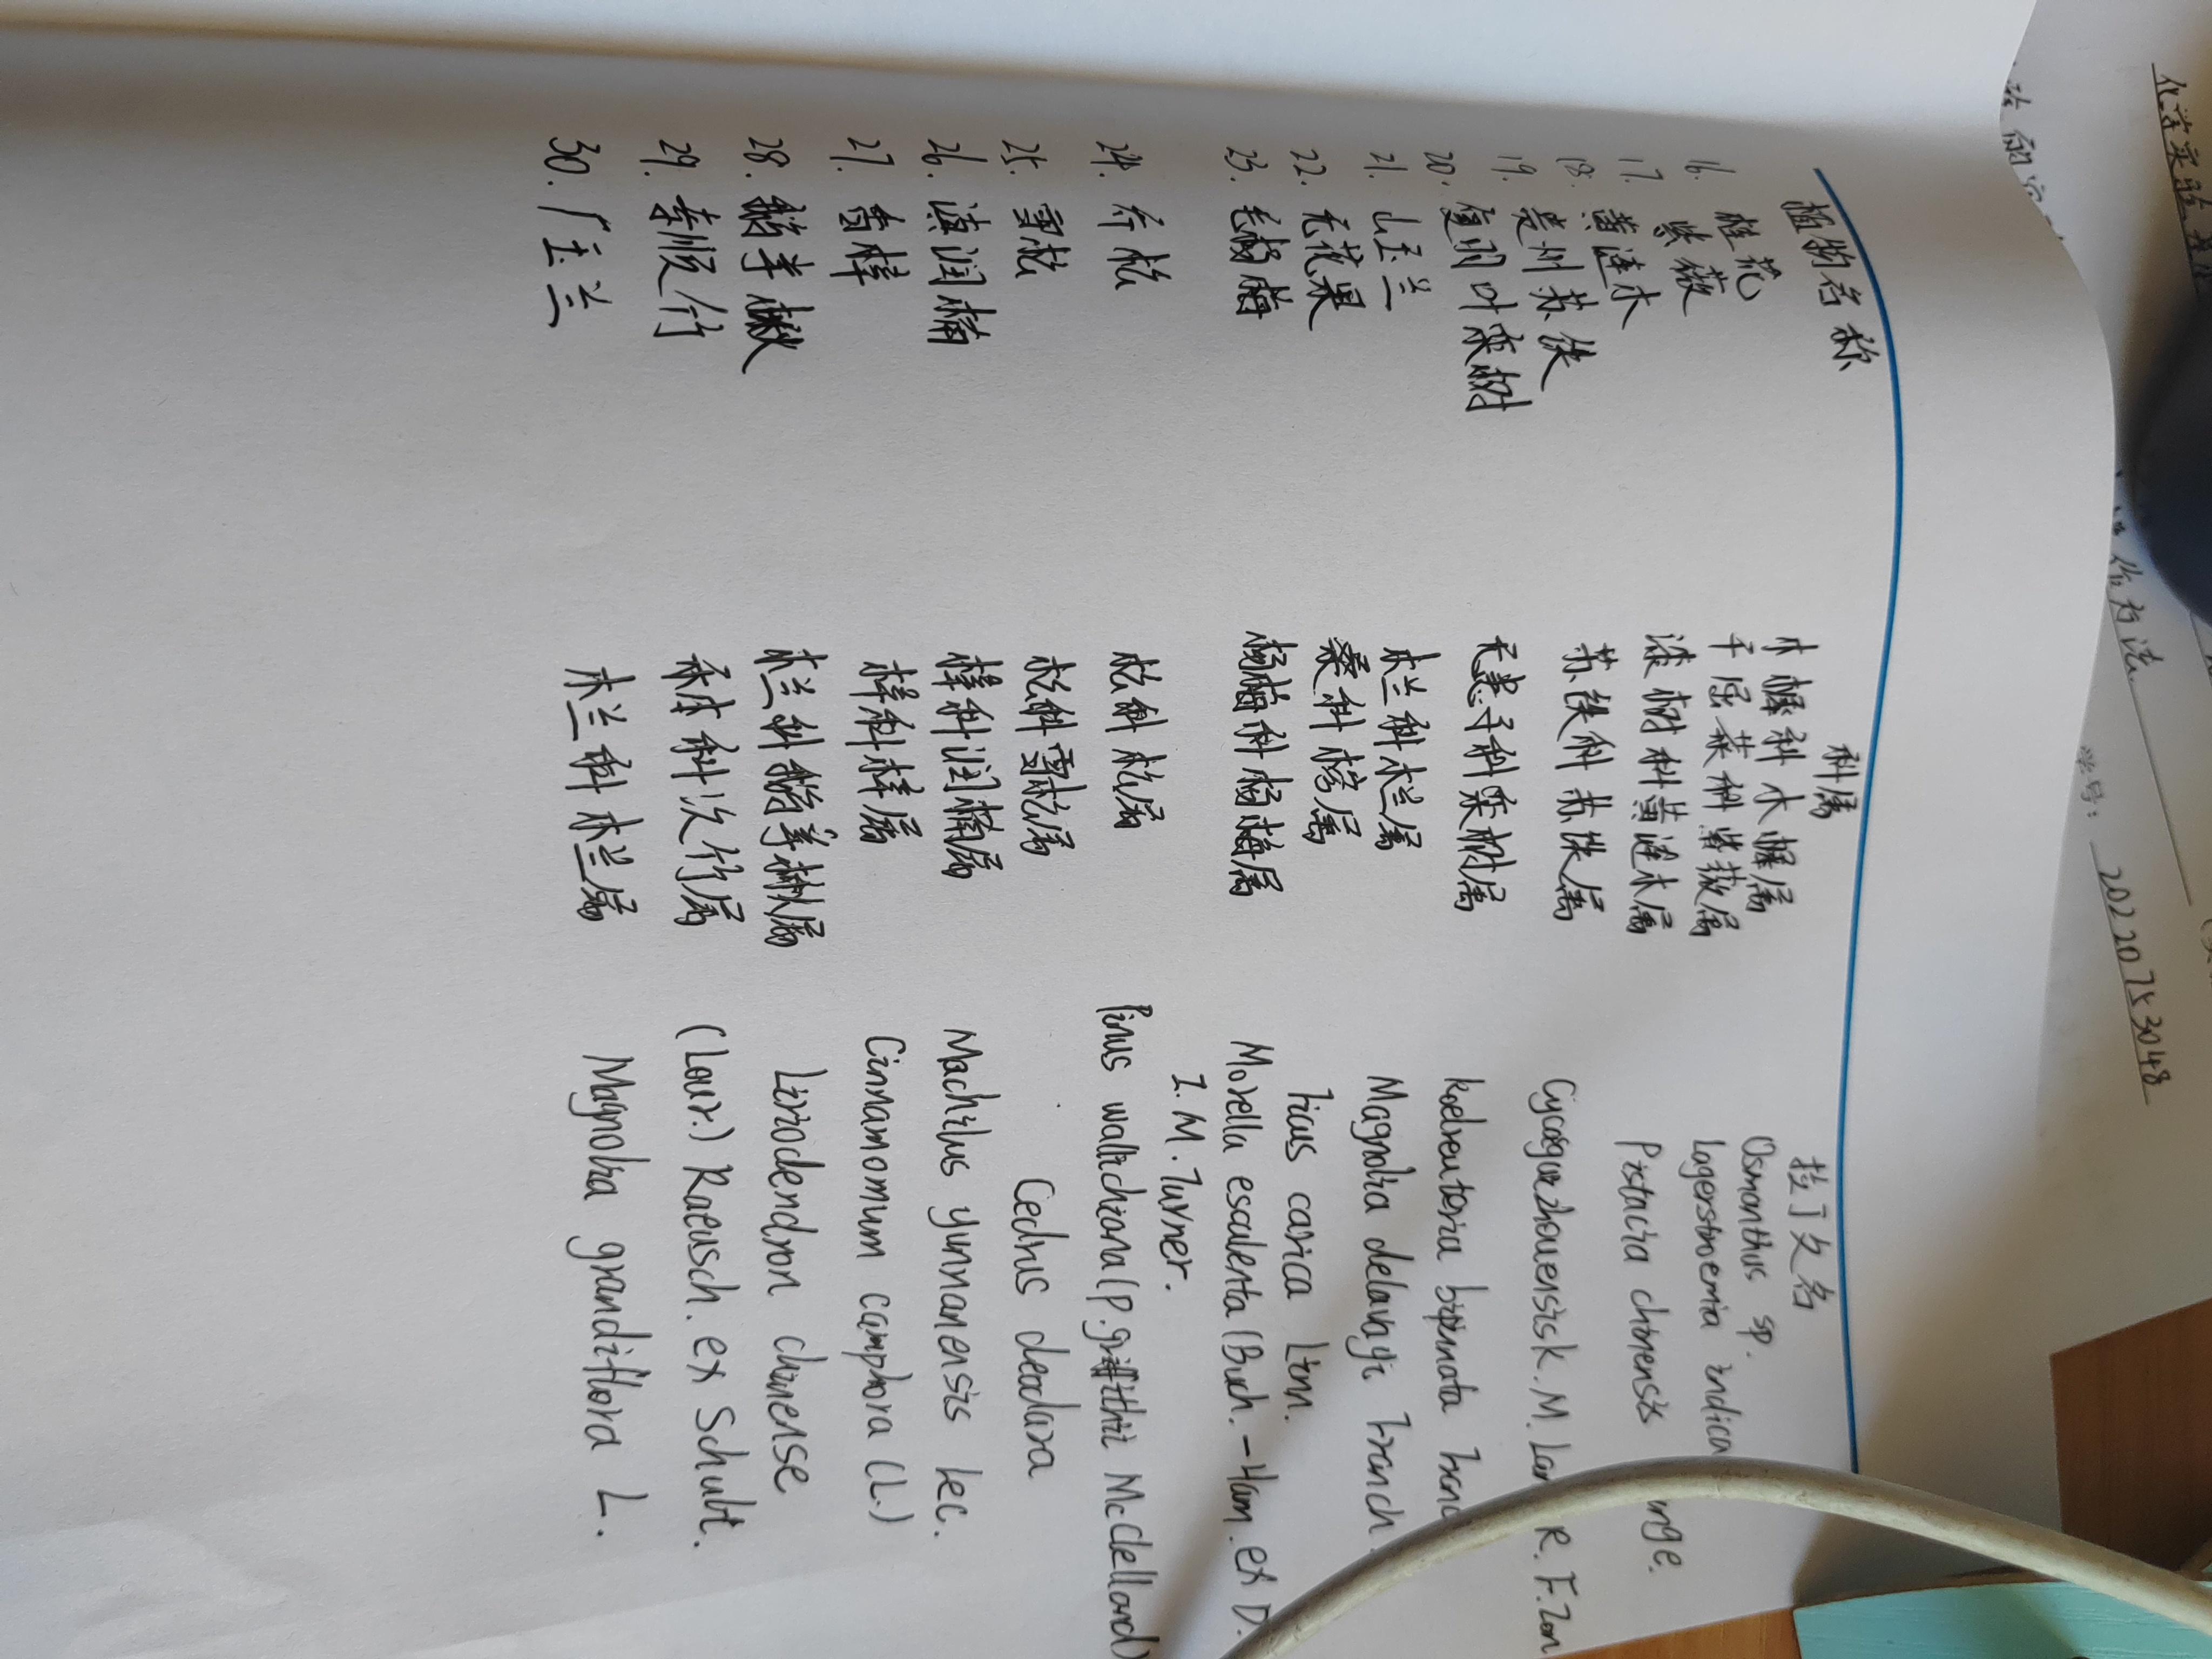 植物名称 科属 拉丁文名
16. 桂花 木樨科木樨属 Osmanthus sp.
17. 紫薇 千屈菜科紫薇属 Lagerstroemia indica
18. 黄涟木 漆树科黄涟木属 Pistacia chinensis unge.
19. 贵州苏铁 苏铁科苏铁属 Cycasguizhouensisk.M.Lan R.F.Zon
20. 复羽叶栾树 无患子科栾树属 Koelreuteria bipinnata Franc
21. 山玉兰 木兰科木兰属 Magnolia delavayi Franch.
22. 无花果 桑科榕属 Ficus carica Linn.
23. 毛杨梅 杨梅科杨梅属 Morella esculenta (Buch.-Ham. ex D.
I.M.Turner.
24. 乔松 松科松属 Pinus wallichiana (P.griffithii McClelland)
25. 雪松 松科雪松属 Cedrus deodara
26. 滇润楠 樟科润楠属 Machilus yunnanensis Lec.
27. 香樟 樟科樟属 Cinnamomum camphora (L.)
28. 鹅掌楸 木兰科鹅掌楸属 Liriodendron chinense
29. 孝顺竹 禾本科次竹属 (Lour.) Raeusch. ex Schult.
30. 广玉兰 木兰科木兰属 Magnolia grandiflora L.
化学实验
学号: 202207X3048